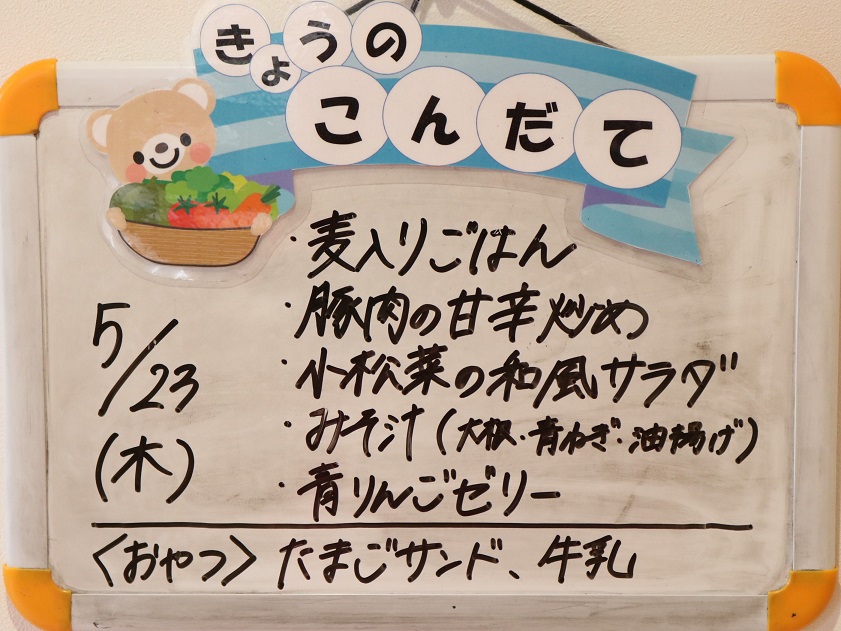 きょうの
こんだて
5/23
(木)
・麦入りごはん
・豚肉の甘辛炒め
・小松菜の和風サラダ
・みそ汁(大根・青ねぎ・油揚げ)
・青りんごゼリー
〈おやつ〉たまごサンド、牛乳